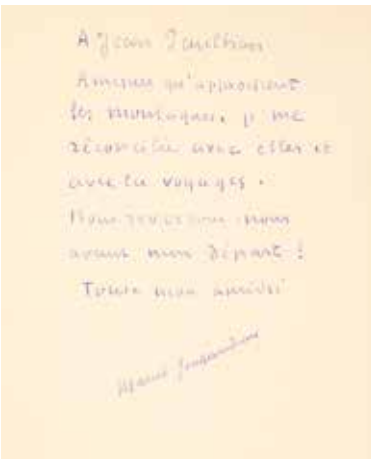 A Jean Paulhan
A mesure qu'approchent
les montagnes, je me
réconcilie avec elles et
avec les voyages.
Nous reverrons-nous
avant mon départ !
Toute mon amitié